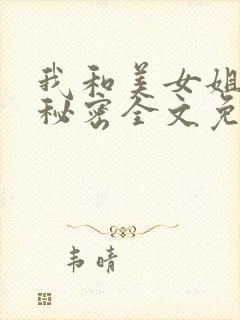 我和美女姐
秘密全文免
韦晴